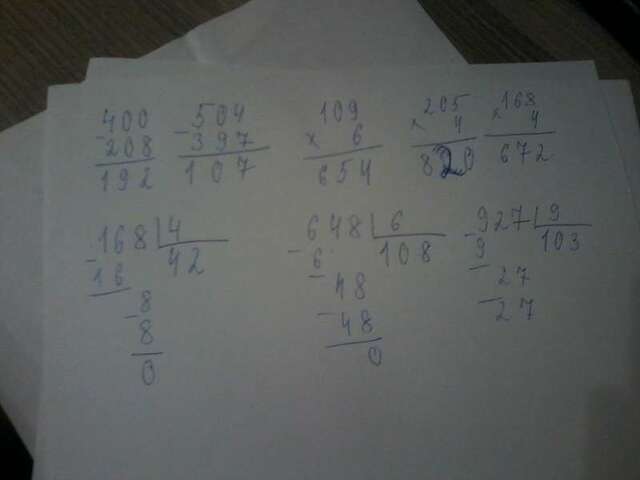 400 504 109 205 168
- 208 - 397 × 6 × 4 × 4
192 107 654 820 672
- 168 4 - 648 6 - 927 9
16 42 6 108 9 103
- 8 - 48 - 27
8 48 27
0 0